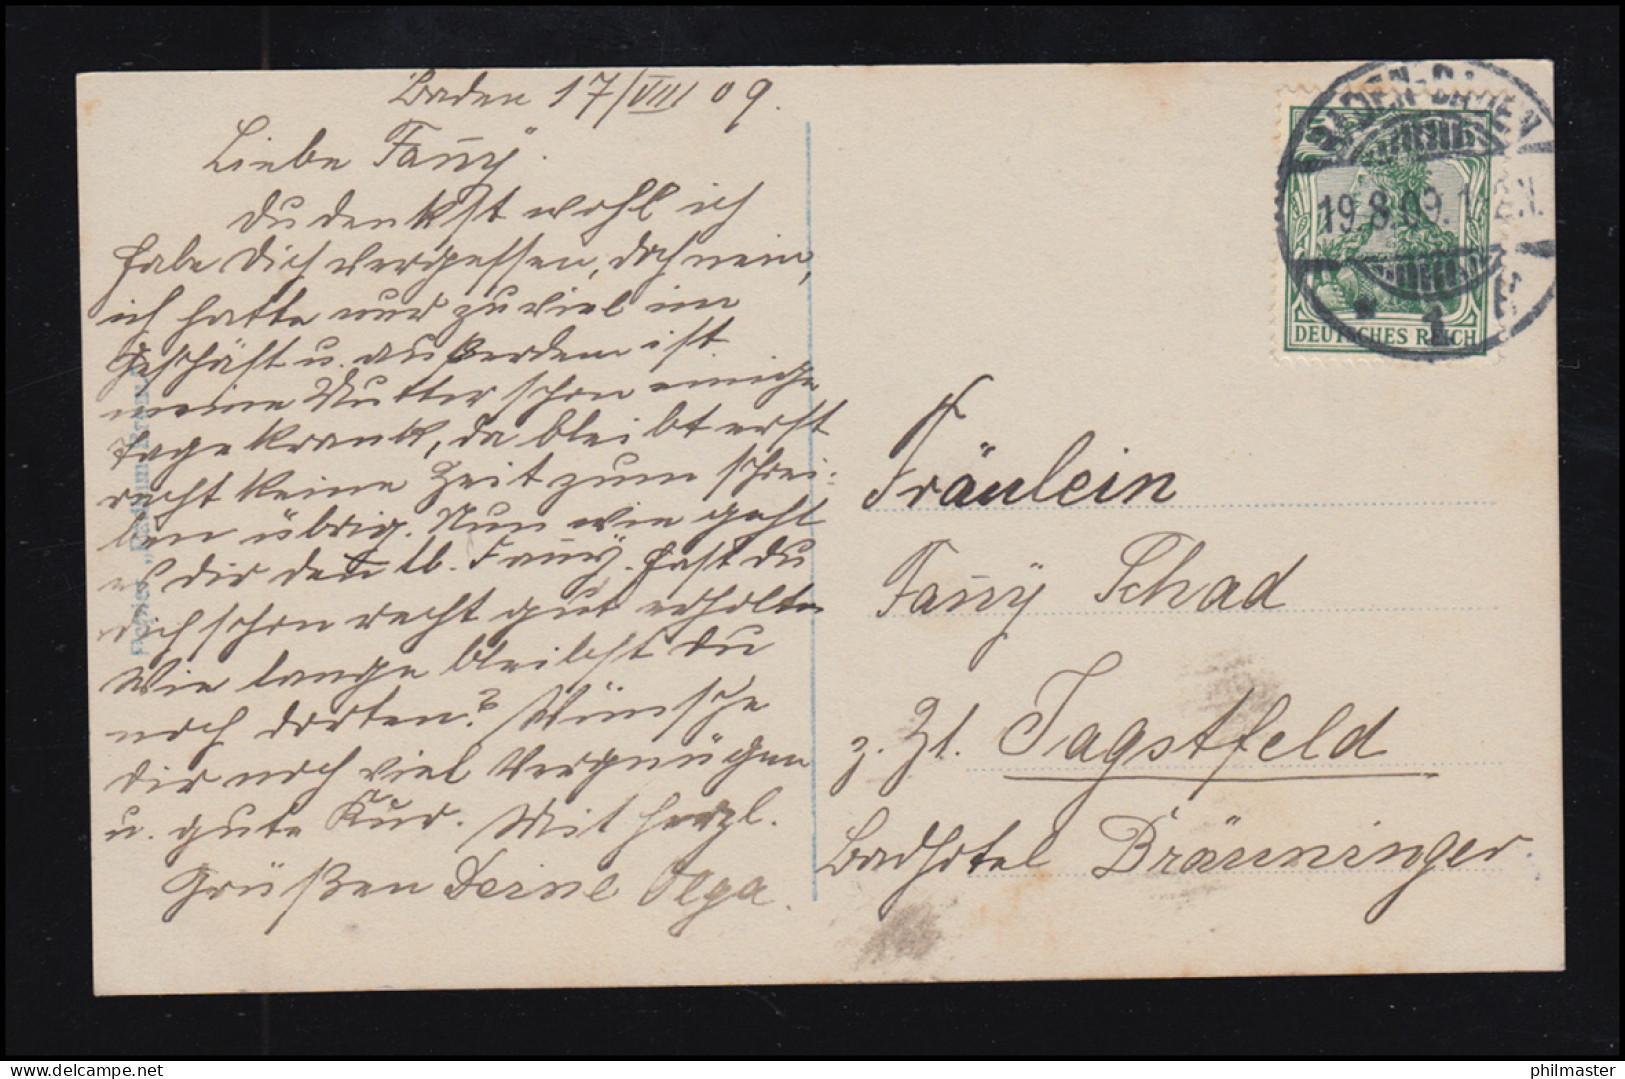 Baden 17/VIII 09.
Liebe Fañy!
Du denkst wohl ich
habe Dich vergessen, doch nein,
ich hatte nur zu viel im
Geschäft u. außerdem ist
meine Mutter schon einige
Tage krank, da bleibt erst
recht keine Zeit zum schrei-
ben übrig. Nun wie geht
es dir den lb. Fañy. Hast du
dich schon recht gut erholt
Wie lange bleibst du
noch dorten? Wünsche
dir noch viel Vergnügen
u. gute Kur. Mit herzl.
Grüßen Deine Olga.
BADEN-BADEN
19.8.09.1
DEUTSCHES REICH
Fräulein
Fañy Schad
z. Zt. Jagstfeld
Badhotel Bräuninger.
philmaster